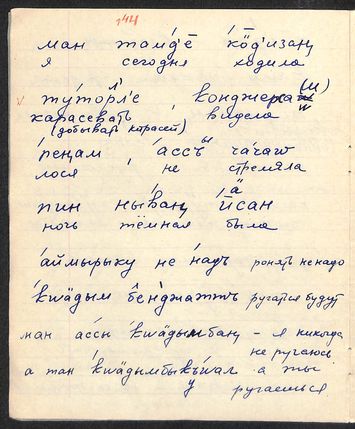 144
ман тамд'е̄ кӧ̄д'изаң
я сегодня ходила
ту́торл'е конджерна (ш)
карасевать видела
(добывать карасей)
ре́ңам ассъ ча́чаш
лося не стреляла
пин ны́ваң йсан
ночь тёмная была
а́ймырыку не на́дъ ронять не надо
кwäдым бе́нджаттъ ругаться будут
ман ассы кwäдымбаң – я никогда
не ругаюсь
а тан кwäдымбыкъwал а ты
ругаешься